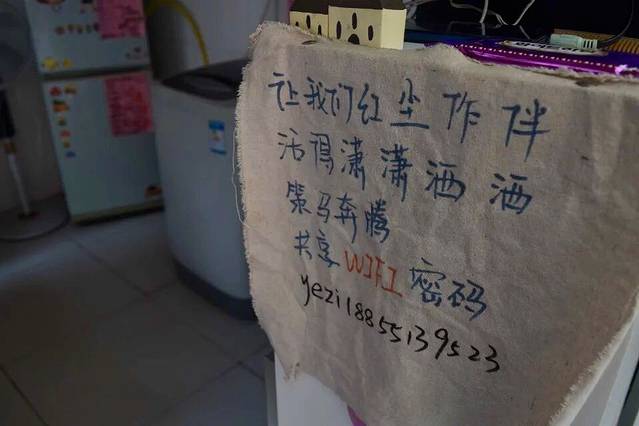 让我们红尘作伴
活得潇潇洒洒
策马奔腾
共享WIFI密码
yezi18855139523